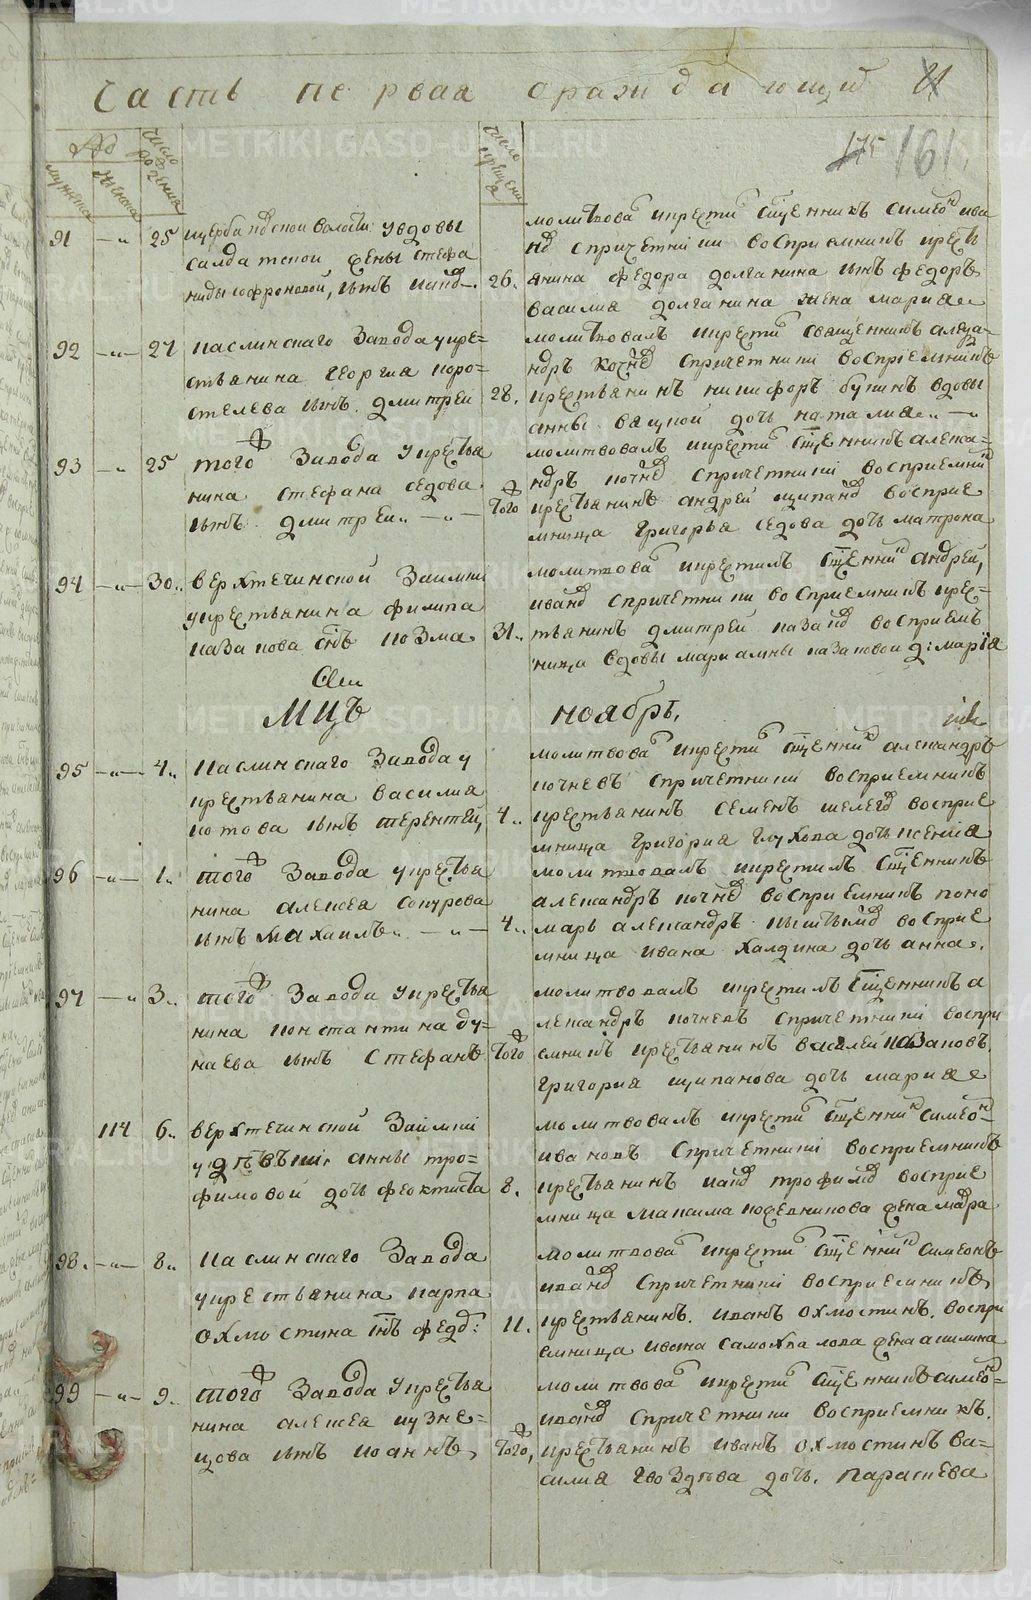 METRIKI.GASO-URAL.RU
часть первая оражда ющих
175 161
№
мужеска
женска
число рождения
число крещения
91 25 щербаковской волости у вдовы
салдатской жены стефа
ниды софроновой,
26.
молитвова и крести сщенникъ симео ива
но спричетники восприемникъ кресть
янина федора долганина сынъ федоръ
василия долганина жена мария
92 27 каслинскаго завода у кре=
стьянина георгия коро=
стелева сынъ дмитрей
28.
молитвовалъ и крести священникъ алекса=
ндръ кочне спричетники восприемникъ
крестьянинъ никифоръ бунинъ вдовы
анны дочь наталия
93 25 того завода у крестья
нина стефана седова
сынъ дмитреи
того
молитвовалъ и крести сщенникъ алекса=
ндръ кочне спричетники восприемни
крестьянинъ андрей щипано восприе
мница григорья седова дочь матрона
94 30 верхтечинской заимки
у крестьянина филипа
казакова снъ козма
31.
молитвова и крестилъ сщенни андрей,
ивано спричетники восприемникъ крес=
тьянинъ дмитрей казако восприемъ
ница вдовы мариамны казаковой д: мария
мцъ ноябрь.
95 4 каслинскаго завода у
крестьянина василия
котова сынъ терентей
4
молитвова и крести сщенни александръ
кочневъ спричетники восприемникъ
крестьянинъ семенъ шелего восприе
мница григория глухова дочь ксения
96 1 того завода у крестья
нина алексея сокурова
сынъ михаилъ
4
молитвовалъ и крестилъ сщенникъ
александръ кочне восприемникъ поно
марь александръ восприе
мница ивана халдина дочь анна
97 3 того завода у крестья
нина константина ду=
наева сынъ стефанъ
того
молитвовалъ и крестилъ сщенникъ а
лександръ кочневъ спричетники воспри
емникъ крестьянинъ василей казаковъ.
григория щипанова дочь мария
114 6 верхтечинской заимки
у девки анны тро=
фимовой дочь феоктиста
8.
молитвовалъ и крести сщенни симео
ивановъ спричетники восприемникъ
крестьянинъ трофимо восприе
мница максима кожевникова жена
98. 8 каслинскаго завода
у крестьянина карпа
охмостина снъ федо:
11.
молитвова и крести сщенни симеонъ
ивано спричетники восприемникъ
крестьянинъ. иванъ охмостинъ. воспри
емница ивана самохвалова жена акилина
99 9 того завода у крестья
нина алексея кузне=
цова сынъ иоаннъ,
того,
молитвова и крести сщенникъ симео=
ивано спричетники восприемникъ.
крестьянинъ иванъ охмостинъ ва=
силия гвоздева дочь. параскева